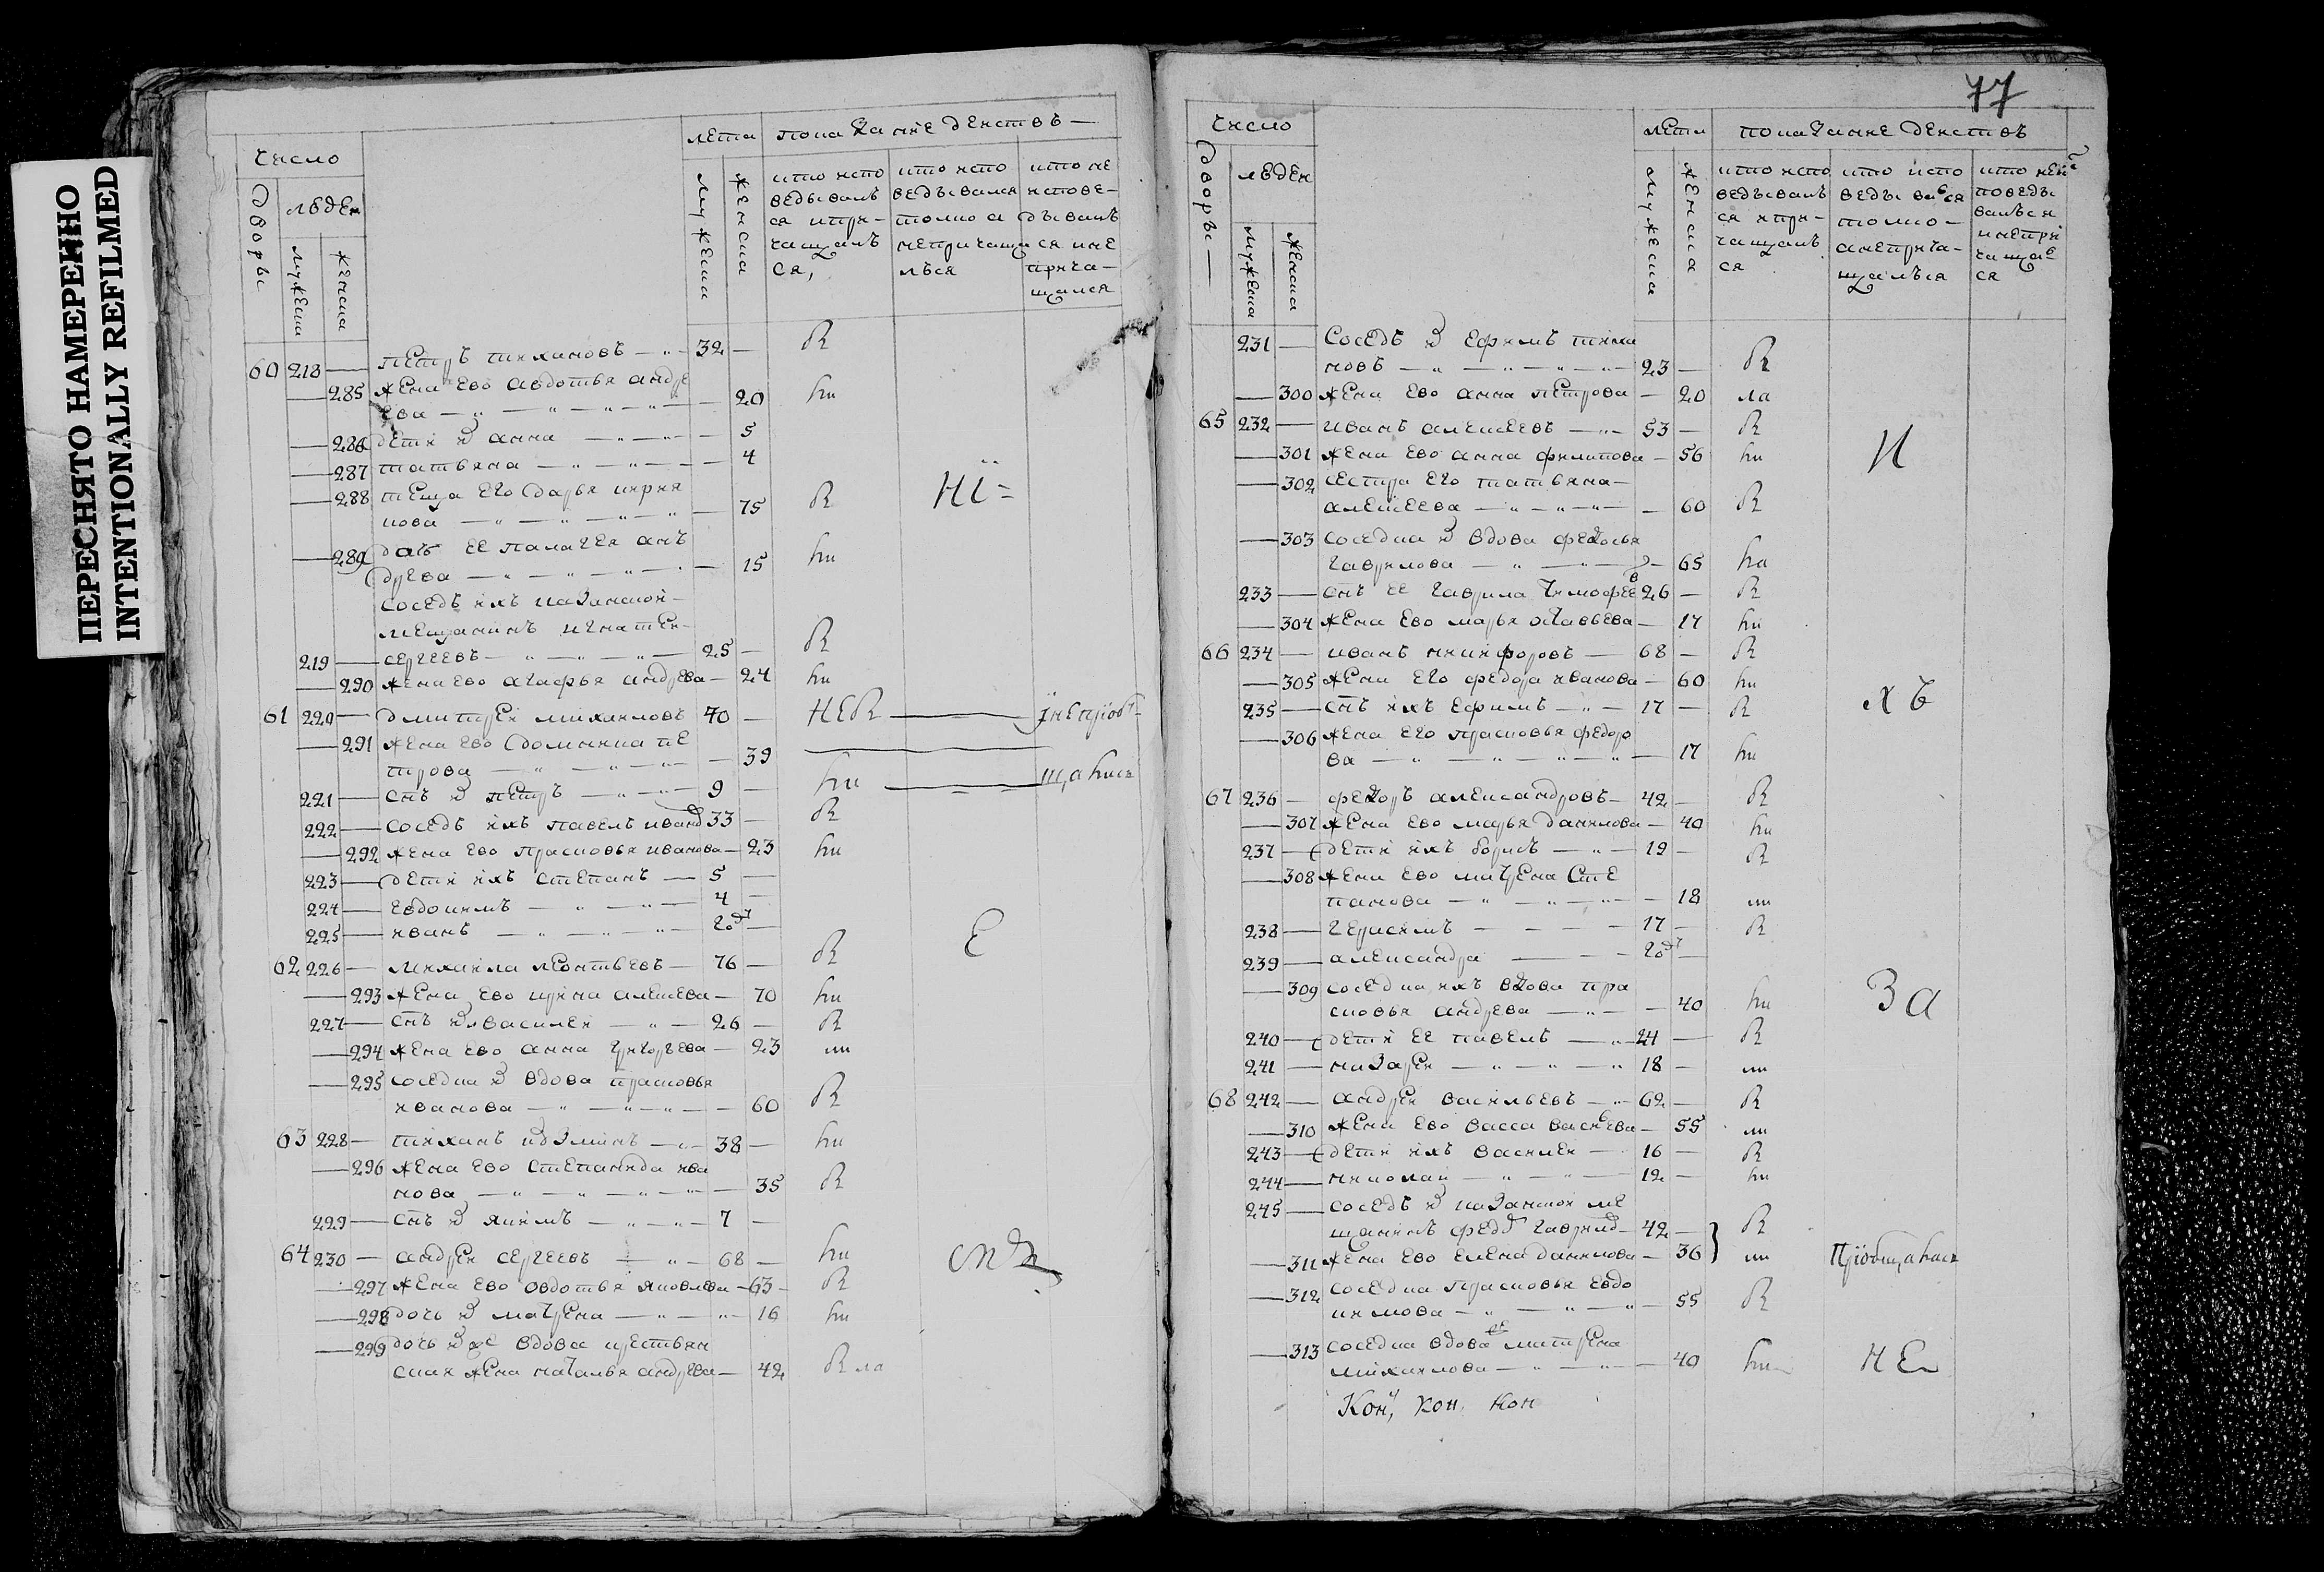 ПЕРЕСНЯТО НАМЕРЕННО
INTENTIONALLY REFILMED
число
лета
показание действъ
дворы
людеи
мужеска
женска
мужеска
женска
кто испо
ведывалъ
ся и при-
чащалъ
ся,
кто испо
ведывался
толко а
непричаща
лъся
кто не
испове-
дывалъ
ся ине
прича-
щался
60 218 — петръ тихановъ — 32 —
— 285 жена ево авдотья андре
ева — 20
— 286 дети анна — 5
— 287 татьяна — 4
— 288 теща его дарья
— 75
— 289 дочь ее палагея анъ
древа — 15
соседъ ихъ казанской
мещанинъ игнатеи
219 — сергеевъ — 25 —
— 290 жена ево агафья андрева — 24
61 220 — дмитреи михаиловъ 70 —
— 291 жена ево домнина пе
трова — 39
221 — снъ петръ — 9 —
222 — соседъ ихъ павелъ иванов 33 —
— 292 жена ево прасковья иванова — 23
223 — дети ихъ степанъ — 5 —
224 — евдокимъ — 4 —
225 — иванъ — год —
62 226 — михаила леонтьевъ — 76 —
— 293 жена ево ирина алексева — 70
227 — снъ василеи — 26 —
— 294 жена ево анна григорьева — 23
— 295 соседка вдова прасковья
иванова — 60
63 228 — тиханъ козминъ — 38 —
— 296 жена ево степанида ива
нова — 35
229 — снъ якимъ — 7 —
64 230 — андреи сергеевъ — 68 —
— 297 жена ево овдотья яковлева — 63
— 298 дочь матрена — 16
— 299 дочь вдова крестьян
ская жена наталья андрева — 42
77
число
лета
показание действъ
дворы
людеи
мужеска
женска
мужеска
женска
кто испо
ведывалъ
ся и при-
чащалъ
ся
кто испо
ведывался
толко-
а неприча-
щалъся
кто неис
поведы
валъся
и непри
чащал
ся
231 — Соседъ ефимъ тиха
новъ — 23 —
— 300 жена ево анна петрова — 20
65 232 — иванъ алексеевъ — 53 —
— 301 жена ево анна филипова — 56
— 302 сестра его татьяна —
алексеева — 60
— 303 соседка вдова федосья
гаврилова — 65
233 — снъ ее гаврила тимофеев 26 —
— 304 жена ево марья — 17
66 234 — иванъ никифоровъ — 68 —
— 305 жена его федора иванова — 60
235 — снъ ихъ ефимъ — 17 —
— 306 жена его прасковья федоро
ва — 17
67 236 — федоръ александровъ — 42 —
— 307 жена ево марья данилова — 40
237 — дети ихъ борисъ — 19 —
— 308 жена ево матрена сте
панова — 18
238 — герасимъ — 17 —
239 — александра — год —
— 309 соседка ихъ вдова пра
сковья андрева — 40
240 — дети ее павелъ — 24 —
241 — назареи — 18 —
68 242 — андреи васильевъ — 62 —
— 310 жена ево васса васильева — 55
243 — дети ихъ василеи — 16 —
244 — николаи — 12 —
245 — соседъ казанскои ме
щанинъ федор гаврилов — 42 —
— 311 жена ево елена данилова — 36
Пріобщались
— 312 соседка прасковья евдо
кимова — 55
— 313 соседка вдова матрена
михаилова — 40
Кон, кон, кон